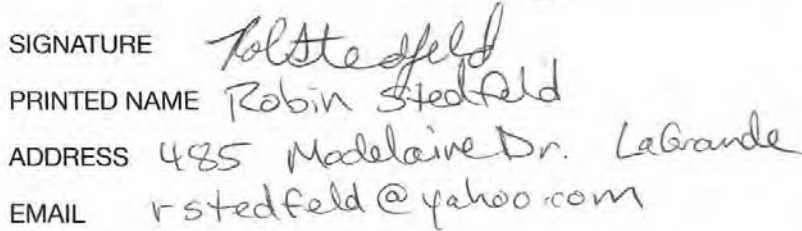 SIGNATURE RobStedfeld
PRINTED NAME Robin Stedfeld
ADDRESS 485 Modelaine Dr. LaGrande
EMAIL rstedfeld@yahoo.com